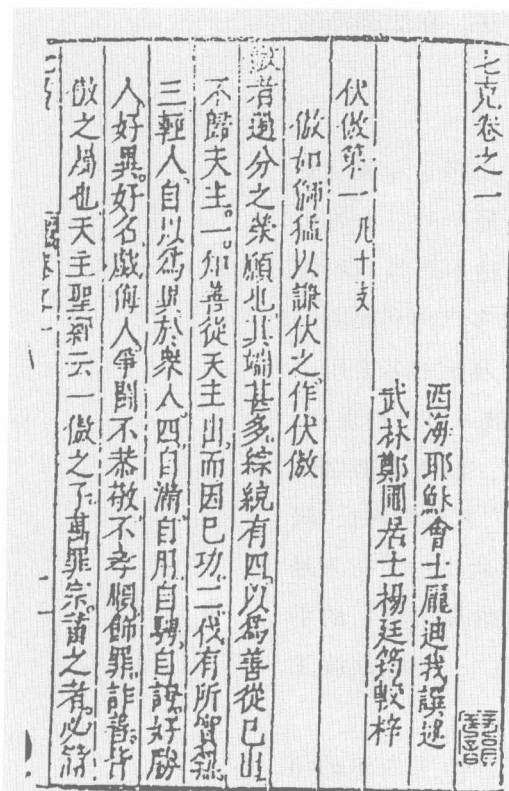 七克卷之一
西海耶穌會士龐迪我譔述
武林鄭圃居士楊廷筠較梓
伏傲第一 凡十支
傲如獅猛以謙伏之作伏傲
傲者過分之榮願也其端甚多綜統有四以爲善從己出
不歸天主一知善從天主出而因己功二伐有所實無
三輕人自以爲異於衆人四自滿自用自騁自誇好勝
人好異好名戲侮人爭鬪不恭敬不孝順飾罪詐善皆
傲之屬也天主聖經云一傲之子萬罪宗蓄之者必
七克 卷之一